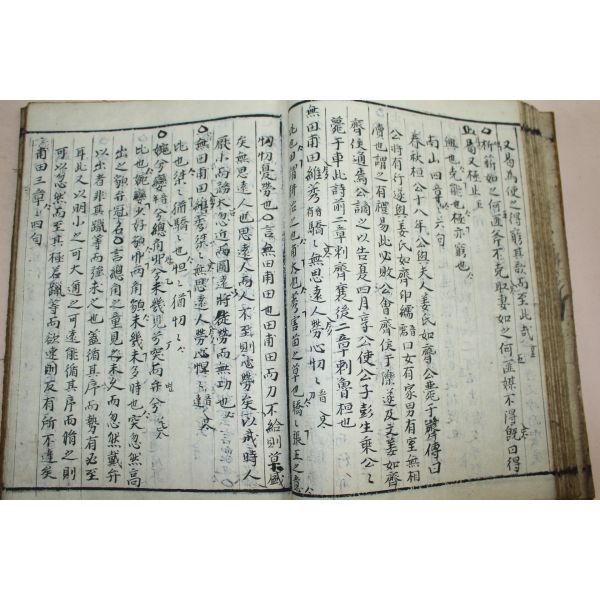 又曷爲使之得窮其欲而至此哉
析薪如之何匪斧不克取妻如之何匪媒不得旣曰得
止曷又極止
興也克能也極亦窮也
南山四章章六句
春秋桓公十八年公與夫人姜氏如齊公薨于齊傳曰
公將有行遂與姜氏如齊申繻曰女有家男有室無相
瀆也謂之有禮易此必敗公會齊侯于濼遂及文姜如齊
齊侯通焉公謫之以告夏四月享公使公子彭生乘公〻
薨于車此詩前二章刺齊襄後二章刺魯桓也
無田甫田維莠驕〻無思遠人勞心忉〻
比也田謂耕治之也甫大也莠害苗之草也驕〻張王之意
忉忉憂勞也○言無田甫田也田甫田而力不給則草盛
矣無思遠人也思遠人而人不至則心勞矣以戒時人
厭小而務大忽近而圖遠將徒勞而無功也
○無田甫田維莠桀〻無思遠人勞心怛〻
比也桀〻猶驕〻也怛〻猶忉〻也
○婉兮孌兮總角丱兮未幾見兮突而弁兮
比也婉孌少好貌丱兩角貌未幾未多時也突忽然高
出之貌弁冠名○言總角之童見之未久而忽然戴弁
以出者非其躐等而強求之也蓋循其序而勢有必至
耳此又以明小之可大邇之可遠能循其序而脩之則
可以忽然而至其極若躐等而欲速則反有所不達矣
甫田三章〻四句